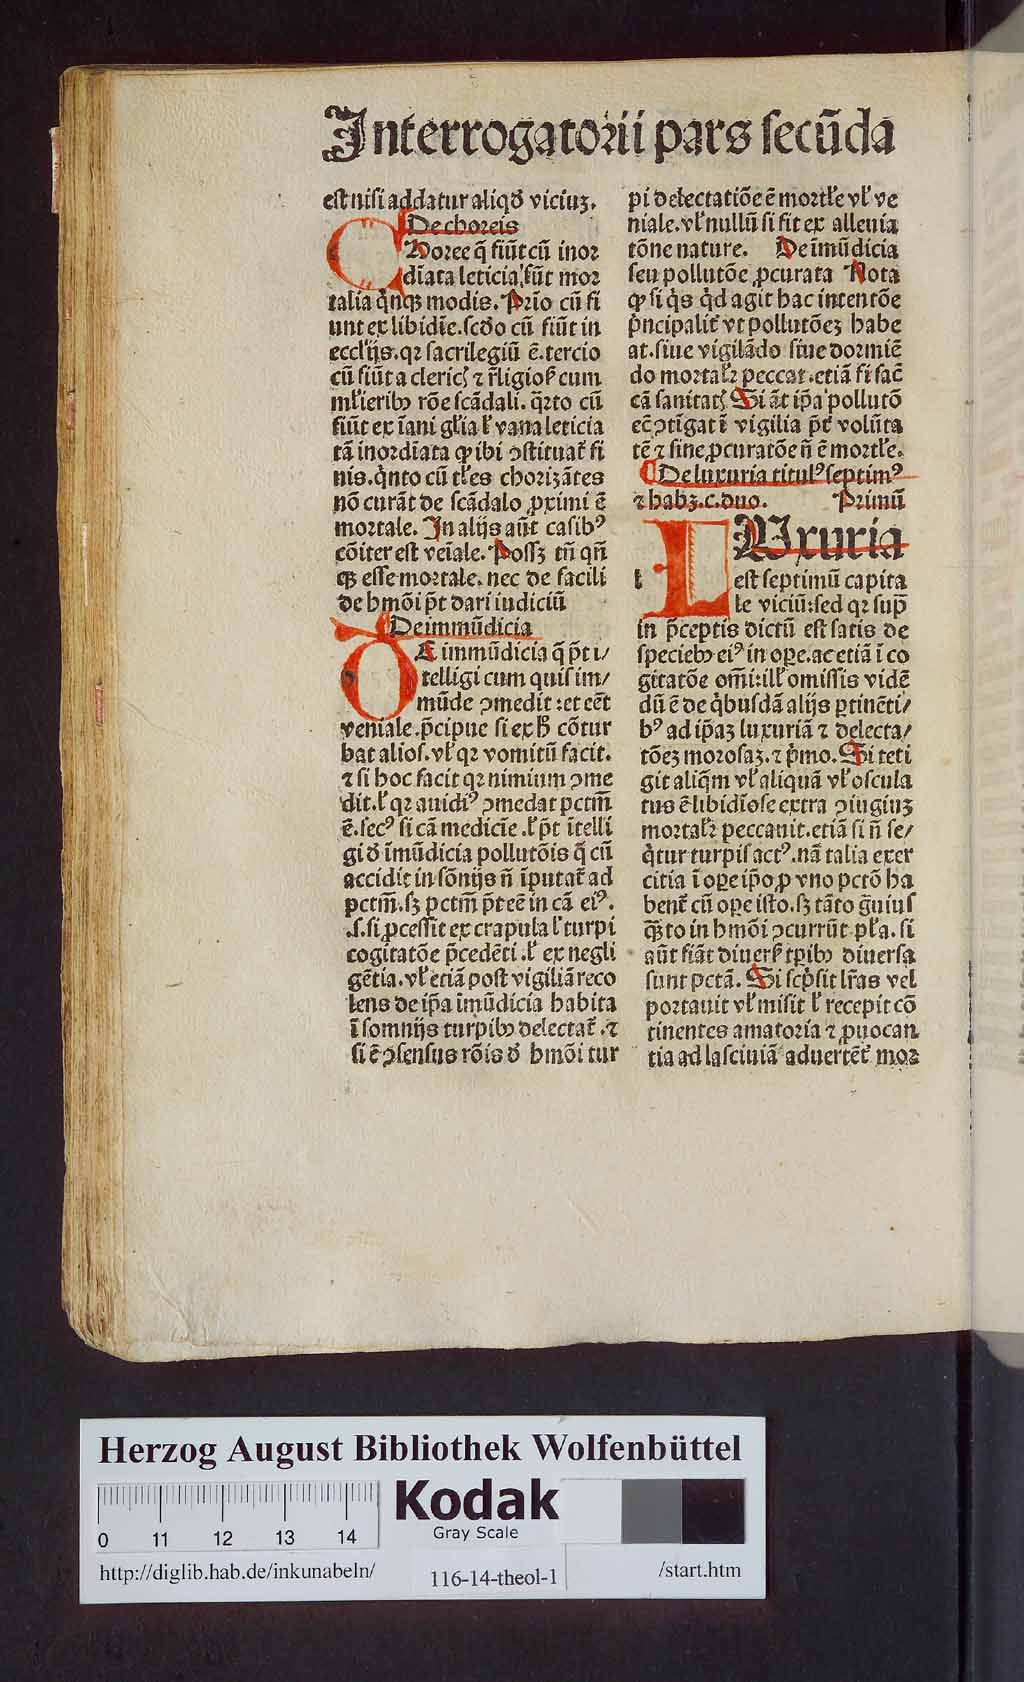 Interrogatorii pars secūda
est nisi addatur aliqd̄ viciuꝫ.
De choreis
CHoree q̄ fiūt cū inor
dīata leticia sūt mor
talia qͥnqꝫ modis. Prīo cū fi
unt ex libidīe. scd̄o cū fiūt in
eccl'ijs. qꝛ sacrilegiū ē. tercio
cū fiūt a clericꝭ ⁊ r̄ligioſ cum
ml'ieribꝰ rōe scādali. qͣrto cū
fiūt ex īani gl'ia l' vana leticia
tā inordīata ꝙ ibi ꝯstituat̄ fi
nis. qͥnto cū tl'es chorizātes
nō curāt de scādalo ꝓximi ē
mortale. In alijs aūt casibꝰ
cōiter est veīale. Possꝫ tn̄ qn̄
qꝫ esse mortale. nec de facili
de hmōi p̄t dari iudiciū
De immūdicia
DE immūdicia q̄ p̄t i/
telligi cum quis im/
mūde ꝯmedit : et eēt
veniale. p̄cipue si ex h̄ cōtur
bat alios. vl' qꝛ vomitū facit.
⁊ si hoc facit qꝛ nimium ꝯme
dit. l' qꝛ auidiꝰ ꝯmedat pctm̄
ē. secꝰ si cā medicīe. l' p̄t ītelli
gi d̄ īmūdicia pollutōis q̄ cū
accidit in sōnijs n̄ īputat̄ ad
pctm̄. sꝫ pctm̄ p̄t eē in cā eiꝰ.
.s. si ꝓcessit ex crapula l' turpi
cogitatōe p̄cedēti. l' ex negli
gētia. vl' etiā post vigiliā reco
lens de ip̄a īmūdicia habita
ī somnijs turpibꝰ delectat̄. ⁊
si ē ꝯsensus rōis d̄ hmōi tur
pi delectatiōe ē mortl'e vl' ve
niale. vl' nullū si fit ex alleuia
tōne nature. De īmūdicia
seu pollutōe ꝓcurata Nota
ꝙ si qͥs qͥd agit hac intentōe
pͥncipalit̄ vt pollutōeꝫ habe
at. siue vigilādo siue dormiē
do mortalꝛ peccat. etiā si fac̄
cā sanitatꝭ Si āt ip̄a pollutō
ec̄ ꝯtīgat ī vigilia p̄t volūta
tē ⁊ sine ꝓcuratōe n̄ ē mortl'e.
De luxuria titulꝰ septimꝰ
⁊ habꝫ .c. duo. Primū
LUxuria
l
est septimū capita
le viciū : sed qꝛ sup̄
in p̄ceptis dictū est satis de
speciebꝰ eiꝰ in oꝑe. ac etiā ī co
gitatōe om̄i : ill' omissis vidē
dū ē de qͥbusdā alijs ꝑtinēti/
bꝰ ad ip̄aꝫ luxuriā ⁊ delecta/
tōeꝫ morosaꝫ. ⁊ pͥmo. Si teti
git aliqͣm vl' aliquā vl' oscula
tus ē libidīose extra ꝯiugiuꝫ
mortalꝛ peccauit. etiā si n̄ se/
qͥtur turpis actꝰ. nā talia exer
citia ī oꝑe ip̄o ꝓ vno pctō ha
bent̄ cū oꝑe isto. sꝫ tāto gͣuius
qͣꝫto in hmōi ꝯcurrūt pl'a. si
aūt fiāt diuersꝭ tꝑibꝰ diuersa
sunt pctā. Si scpͥsit lr̄as vel
portauit vl' misit l' recepit cō
tinentes amatoria ⁊ ꝓuocan
tia ad lasciuiā aduertēt̄ moꝛ
Herzog August Bibliothek Wolfenbüttel
0 11 12 13 14
Kodak
Gray Scale
http://diglib.hab.de/inkunabeln/ 116-14-theol-1 /start.htm